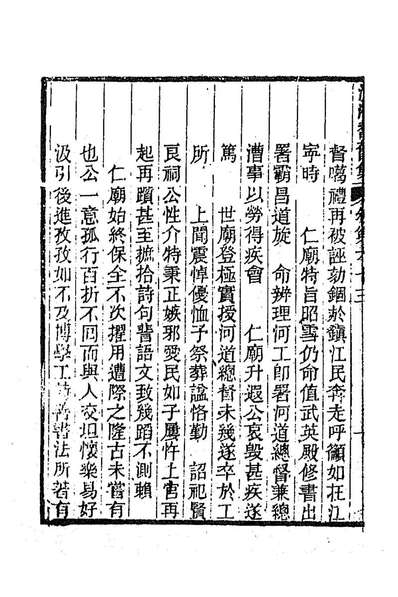 督噶禮再被誣劾錮於鎮江民奔走呼籲如在江
寧時　仁廟特旨昭雪仍命值武英殿修書出
署霸昌道旋　命辨理河工卽署河道總督兼總
漕事以勞得疾會　仁廟升遐公哀毀甚疾遂
篤　世廟登極實授河道總督未幾遂卒於工
所　上聞震悼優恤予祭葬諡恪勤　詔祀賢
良祠公性介特秉正嫉邪愛民如子屢忤上官再
起再躓甚至摭拾詩句訾語文致幾蹈不測賴
仁廟始終保全不次擢用遭際之隆古未嘗有
也公一意孤行百折不囘而與人交坦懷樂易好
汲引後進孜孜如不及博學工詩善書法所著有